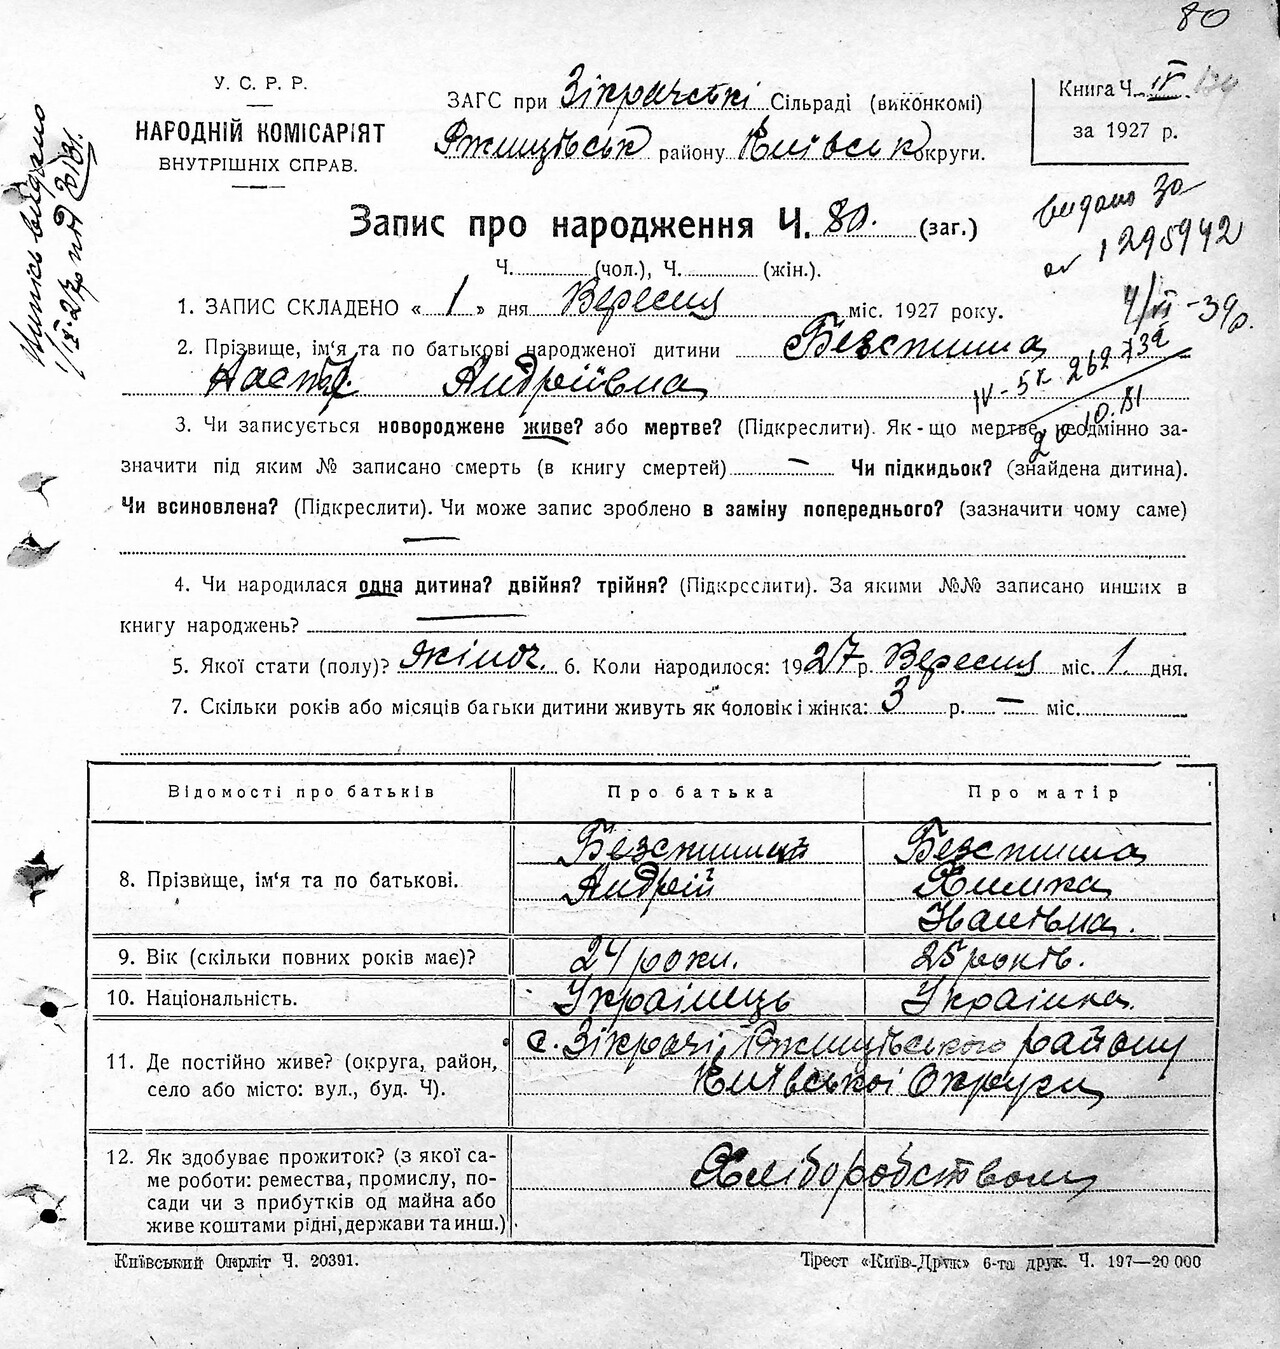 80
У. С. Р. Р.
НАРОДНІЙ КОМІСАРІЯТ
ВНУТРІШНІХ СПРАВ.
ЗАГС при Зікрачські Сільраді (виконкомі)
Ржищівськ району Київськ округи.
Книга Ч. IV
за 1927 р.
Запис про народження Ч. 80. (заг.)
Ч. (чол.), Ч. (жін.).
видано
1295942
1. ЗАПИС СКЛАДЕНО « 1 » дня Вересня міс. 1927 року.
2. Прізвище, ім'я та по батькові народженої дитини Безспиша
Наст. Андріївна
3. Чи записується новороджене живе? або мертве? (Підкреслити). Як-що мертве, неодмінно за-
значити під яким № записано смерть (в книгу смертей) — Чи підкидьок? (знайдена дитина).
Чи всиновлена? (Підкреслити). Чи може запис зроблено в заміну попереднього? (зазначити чому саме)
—
4. Чи народилася одна дитина? двійня? трійня? (Підкреслити). За якими №№ записано инших в
книгу народжень? —
5. Якої стати (полу)? жіноч. 6. Коли народилося: 1927 р. Вересня міс. 1. дня.
7. Скільки років або місяців батьки дитини живуть як чоловік і жінка: 3 р. — міс.
Відомості про батьків Про батька Про матір
8. Прізвище, ім'я та по батькові. Безспиший Безспиша
Андрій Химка
Іванівна.
9. Вік (скільки повних років має)? 24 роки. 25 років.
10. Національність. Українець Українка.
11. Де постійно живе? (округа, район, с. Зікрачі, Ржищівського району
село або місто: вул., буд. Ч). Київської Округи
12. Як здобуває прожиток? (з якої са- Хліборобством
ме роботи: ремества, промислу, по-
сади чи з прибутків од майна або
живе коштами рідні, держави та инш.)
Київський Окрліт Ч. 20391.
Трест «Київ-Друк» 6-та друк. Ч. 197—20 000